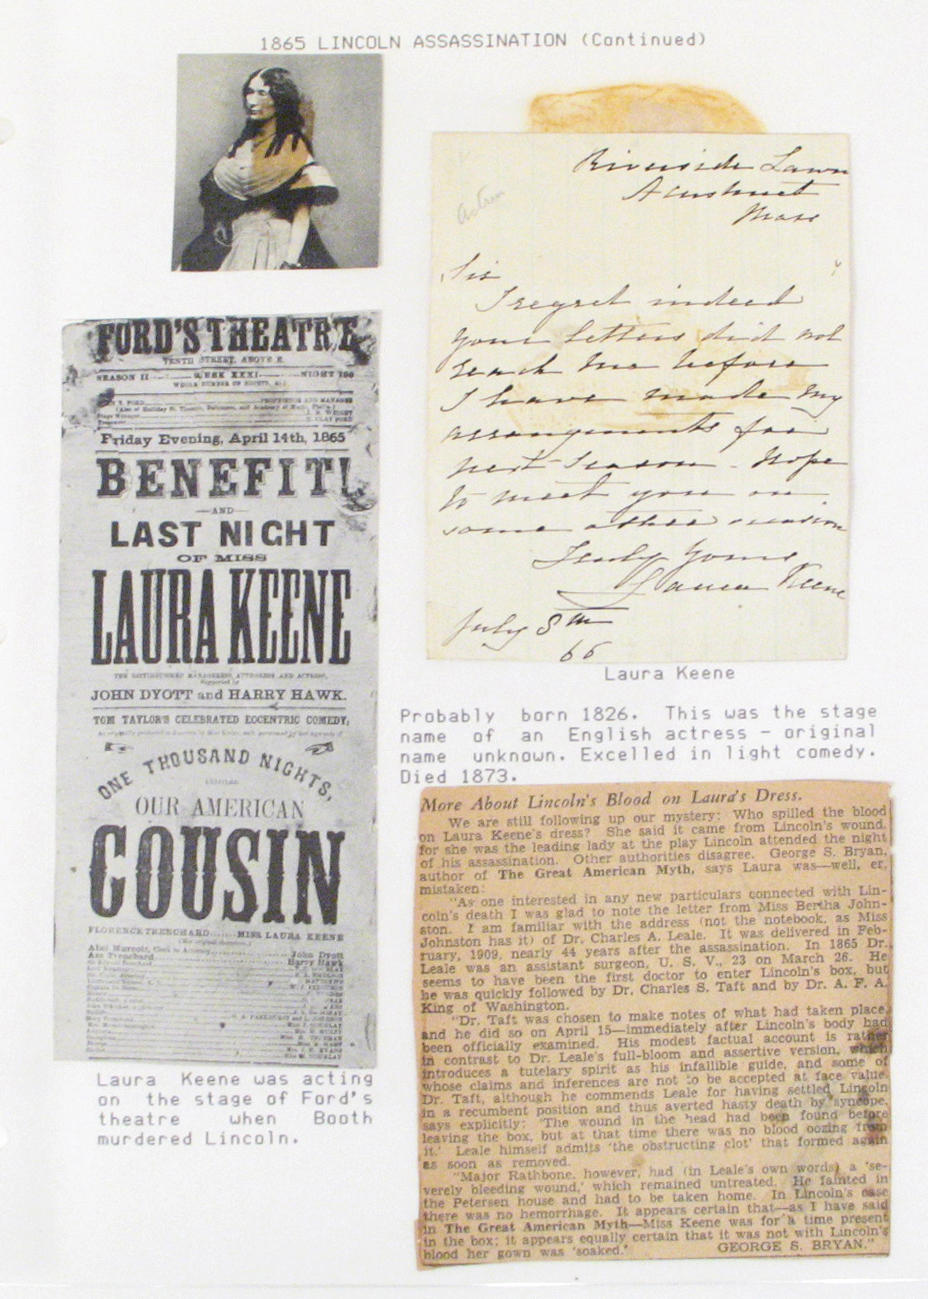 1865 LINCOLN ASSASSINATION (Continued)
FORD'S THEATRE
TENTH STREET, ABOVE E.
SEASON II WEEK XXXI NIGHT
Friday Evening, April 14th, 1865
BENEFIT!
—AND—
LAST NIGHT
OF MISS
LAURA KEENE
THE DISTINGUISHED MANAGERESS, AUTHORESS AND ACTRESS,
Supported by
JOHN DYOTT and HARRY HAWK.
TOM TAYLOR'S CELEBRATED ECCENTRIC COMEDY;
ONE THOUSAND NIGHTS,
OUR AMERICAN
COUSIN
FLORENCE TRENCHARD MISS LAURA KEENE
John Dyott
Harry Hawk
Laura Keene was acting
on the stage of Ford's
theatre when Booth
murdered Lincoln.
Actress
Riverside Lawn
Acushnet
Mass
Sir
I regret indeed
your letters did not
reach me before
I have made my
arrangements for
next season - Hope
to meet you on
some other occasion
Truly Yours
Laura Keene
July 8th
66
Laura Keene
Probably born 1826. This was the stage
name of an English actress - original
name unknown. Excelled in light comedy.
Died 1873.
More About Lincoln's Blood on Laura's Dress.
We are still following up our mystery: Who spilled the blood
on Laura Keene's dress? She said it came from Lincoln's wound,
for she was the leading lady at the play Lincoln attended the night
of his assassination. Other authorities disagree. George S. Bryan,
author of The Great American Myth, says Laura was—well, er,
mistaken:
"As one interested in any new particulars connected with Lin-
coln's death I was glad to note the letter from Miss Bertha John-
ston. I am familiar with the address (not the notebook, as Miss
Johnston has it) of Dr. Charles A. Leale. It was delivered in Feb-
ruary, 1909, nearly 44 years after the assassination. In 1865 Dr.
Leale was an assistant surgeon, U. S. V., 23 on March 26. He
seems to have been the first doctor to enter Lincoln's box, but
he was quickly followed by Dr. Charles S. Taft and by Dr. A. F. A.
King of Washington.
"Dr. Taft was chosen to make notes of what had taken place,
and he did so on April 15—immediately after Lincoln's body had
been officially examined. His modest factual account is rather
in contrast to Dr. Leale's full-bloom and assertive version, which
introduces a tutelary spirit as his infallible guide, and some of
whose claims and inferences are not to be accepted at face value.
Dr. Taft, although he commends Leale for having settled Lincoln
in a recumbent position and thus averted hasty death by syncope,
says explicitly: 'The wound in the head had been found before
leaving the box, but at that time there was no blood oozing from
it.' Leale himself admits 'the obstructing clot' that formed again
as soon as removed.
"Major Rathbone, however, had (in Leale's own words) a 'se-
verely bleeding wound,' which remained untreated. He fainted in
the Petersen house and had to be taken home. In Lincoln's case
there was no hemorrhage. It appears certain that—as I have said
in The Great American Myth—Miss Keene was for a time present
in the box; it appears equally certain that it was not with Lincoln's
blood her gown was 'soaked.' GEORGE S. BRYAN."